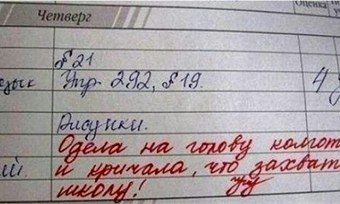 Четверг
Оценка
§ 21
Упр. 292, § 19.
4
Рисунки.
Одела на голову колгот
и кричала, что захват
школу!